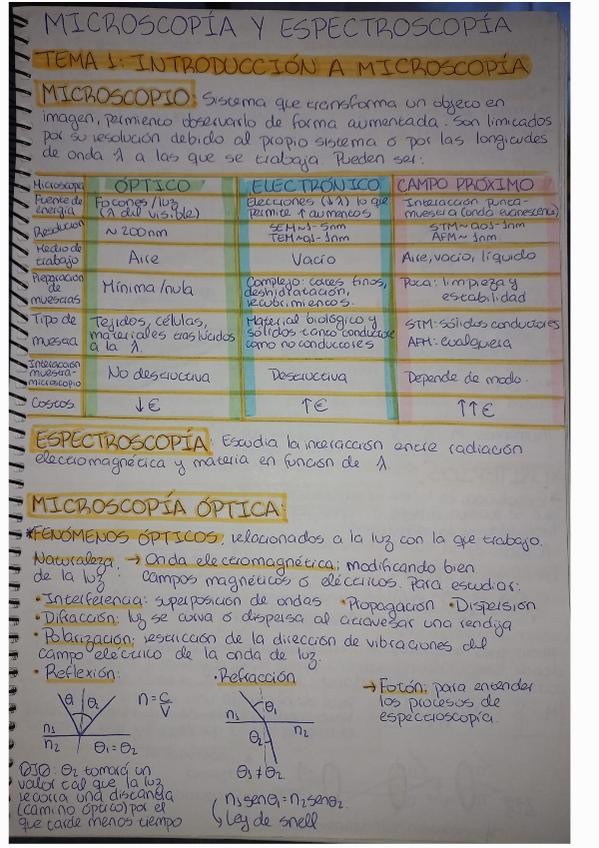 MICROSCOPÍA Y ESPECTROSCOPÍA
TEMA 1: INTRODUCCIÓN A MICROSCOPÍA
MICROSCOPIO: Sistema que transforma un objeto en
imagen, permiento observarlo de forma aumentada. Son limitados
por su resolución debido al propio sistema o por las longitudes
de onda λ a las que se trabaja. Pueden ser:
Microscopio ÓPTICO ELECTRÓNICO CAMPO PRÓXIMO
Fuente de energía Focones/luz (λ del visible) Electrones (↓λ) lo que permite ↑ aumentos Interacción punta-muestra (onda evanescente)
Resolución ~200nm SEM~1-5nm TEM~0,1-1nm STM~0,01-1nm AFM~1nm
Medio de trabajo Aire Vacío Aire, vacío, líquido
Preparación de muestras Mínima/nula Complejo: cortes finos, deshidratación, recubrimientos. Poca: limpieza y estabilidad
Tipo de muestra Tejidos, células, materiales traslúcidos a la λ. Material biológico y sólidos tanto conductores como no conductores STM: sólidos conductores AFM: cualquiera
Interacción muestra-microscopio No destructiva Destructiva Depende de modo.
Costos ↓€ ↑€ ↑↑€
ESPECTROSCOPÍA: Estudia la interacción entre radiación
electromagnética y materia en función de λ
MICROSCOPÍA ÓPTICA:
*FENÓMENOS ÓPTICOS: relacionados a la luz con la que trabajo.
Naturaleza → Onda electromagnética: modificando bien
de la luz: campos magnéticos o eléctricos. Para estudiar:
• Interferencia: superposición de ondas • Propagación • Dispersión
• Difracción: luz se curva o dispersa al atravesar una rendija
• Polarización: restricción de la dirección de vibraciones del
campo eléctrico de la onda de luz.
• Reflexión: • Refracción → Fotón: para entender
los procesos de
espectroscopía.
θ₁ θ₂ n = c/v
n₁
n₂ θ₁ = θ₂
n₁ θ₁
θ₂ n₂
θ₁ ≠ θ₂
n₁ senθ₁ = n₂ senθ₂
Ley de snell
OJO: θ₂ tomará un
valor tal que la luz
recorra una distancia
(camino óptico) por el
que tarde menos tiempo